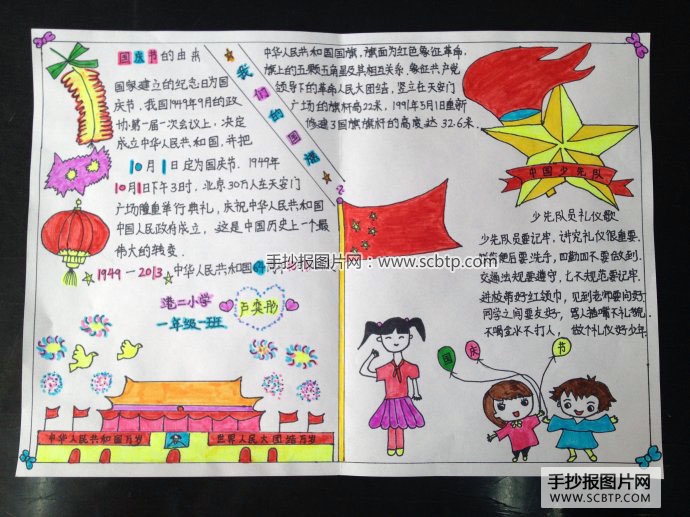 国庆节的由来
国家建立的纪念日为国
庆节,我国1949年9月的政
协第一届一次会议上,决定
成立中华人民共和国,并把
10月1日定为国庆节.1949年
10月1日下午3时,北京30万人在天安门
广场隆重举行典礼,庆祝中华人民共和国
中国人民政府成立,这是中国历史上一个最
伟大的转变.
1949-2013中华人民共和国
港二小学
一年级一班
卢奕彤
中华人民共和国万岁
世界人民大团结万岁
我们的国旗
中华人民共和国国旗,旗面为红色象征革命.
旗上的五颗五角星及其相互关系,象征共产党
领导下的革命人民大团结,竖立在天安门
广场的旗杆高22米,1991年5月1日重新
修建了国旗旗杆的高度达32.6米.
中国少先队
少先队员礼仪歌
少先队员要记牢,讲究礼仪很重要.
便后要洗手,四勤四不要做到.
交通法规要遵守,七不规范要记牢.
进校带好红领巾,见到老师要问好
同学之间要友好,骂人插嘴不礼貌.
不喝生水不打人,做个礼仪好少年.
国
庆
节
手抄报图片网:www.scbtp.com
手抄报图片网
WWW.SCBTP.COM